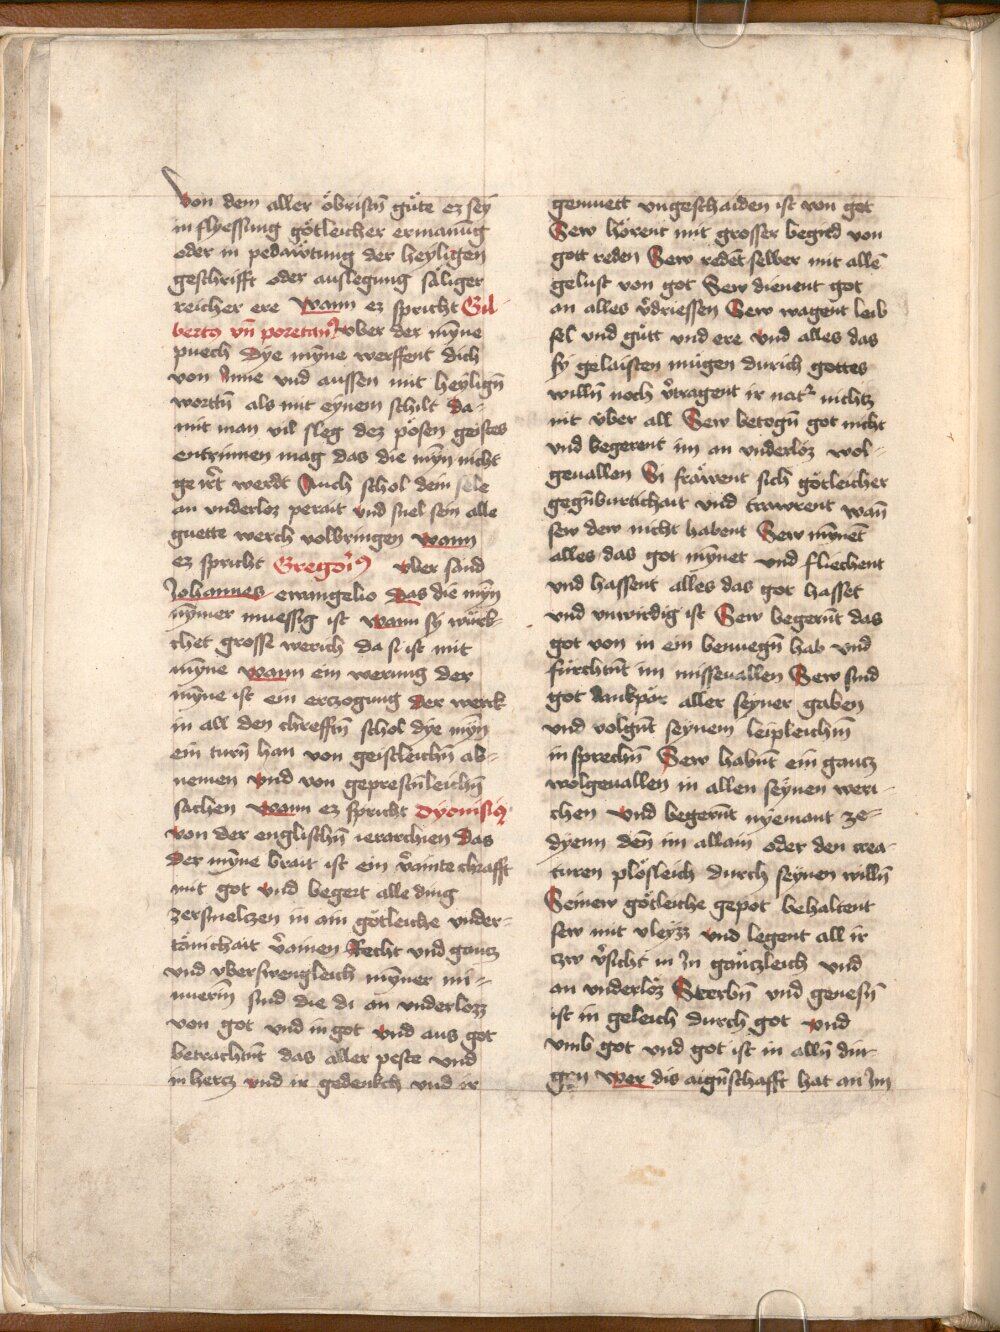 von dem aller öbristn̄ güte ez sey
in flyessung götleicher ermanūg
oder in pedäwtung der heyligen
geschrifft oder auslegung säliger
reicher ere Wann ez spricht Gil-
berto vn̄ poretan9 vber der myne
puech Dye myne werffent dich
von Inne vnd aussen mit heylign̄
wortn̄ als mit eynem schilt Da-
mit man vil sleg dez pösen geistes
entrinnen mag das die myn nicht
geirt werdt Auch schol dein sele
an vnderloz perait vnd snel sein alle
guette werch volbringen Wann
ez spricht Gregori9 vber sand
Johannes ewangelio Das die myn
nymer muessig ist Wann sy würk-
chet grosse werich da si ist mit
myne Wann ein werung der
myne ist ein erczogung Der werck
in all den chrefftn̄ schol dye myn
ein turn̄ han von geistleichn̄ ab-
nemen vnd von geprestn̄leichn̄
sachen Wann ez spricht Dyonisi9
von der englischn̄ ierarchien Das
Der myne brait ist ein v̄ainte chrafft
mit got vnd begert alle ding
zersmelczen in ain götleiche vnder-
tänichait v̄amen Recht vnd gancz
vnd vberswengleich mynner mi-
nnerin̄ sind die di an vnderlozz
von got vnd in got vnd aus got
betrachtn̄t das aller peste vnd
in hercz vnd ir gedenkch vnd ir
gemuett vngeschaiden ist von got
Sew hörent mit grosser begird von
gott reden Sew redēt selber mit allē
gelust von got Sew dienent got
an alles v̄driessen Sew wagent leib
sel vnd gůtt vnd ere vnd alles das
sy gelaisten mügen durich gottes
willn̄ noch v̄tragent ir nat̄ nichtz
nit vber all Sew betogn̄ got nicht
vnd begerent im an vnderloz wol-
geuallen Si fräwent sich götleicher
gegn̄burtichait vnd trawrent wan̄
sew dew nicht habent Sew mynēt
alles das got mynet vnd fliechent
vnd hassent alles das got hasset
vnd vnwirdig ist Sew begern̄t das
got von in ein benuegn̄ hab vnd
fürchtn̄t im missuallen Sew sind
got dankpär aller seyner gaben
vnd volgn̄t seynem leipleichn̄
insprechn̄ Sew habn̄t ein gancz
wolgeuallen in allen seynen wer-
chen vnd begern̄t nyemant ze-
dyenn den̄ im allain oder den crea-
turen plösleich durch seynen willn̄
Seinew götleiche gepot behaltent
sew mit vleyzz vnd legent all ir
czw v̄sicht in In gänczleich vnd
an vnderlöz Sterbn̄ vnd genesn̄
ist in geleich durch got vnd
vmb got vnd got ist in alln̄ din-
gen Wer dis aign̄schafft hat an Im